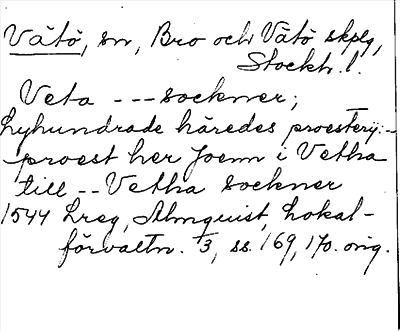 Vätö, sn, Bro och Vätö skplg,
Stockh. l.
Veta --- sockner;
Lyhundrade häredes proestery:-
proest her Joenn i Vetha
till -- Vetha sockner
1544 Lreg, Almquist, Lokal-
förvaltn. 3, ss. 169, 170. orig.